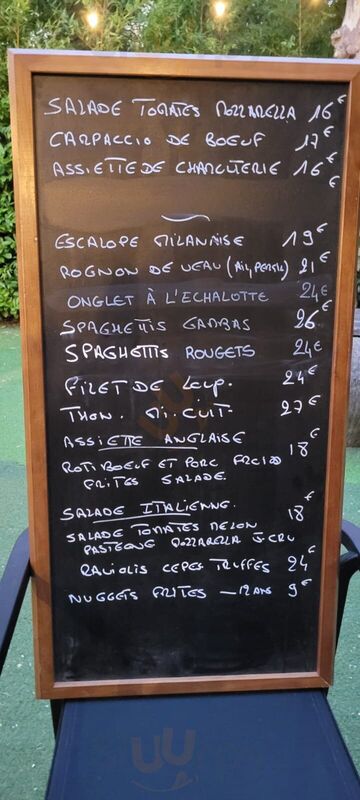 SALADE TOMATES MOZZARELLA 16€
CARPACCIO DE BOEUF 17€
ASSIETTE DE CHARCUTERIE 16€
€
ESCALOPE MILANAISE 19€
ROGNON DE VEAU (Ail, Persil) 21€
ONGLET À L'ECHALOTTE 24€
SPAGHETTIS GAMBAS 26€
SPAGHETTIS ROUGETS 24€
FILET DE LOUP. 24€
THON. MI. CUIT. 27€
ASSIETTE ANGLAISE 18€
ROTI BOEUF ET PORC FROID
FRITES SALADE
SALADE ITALIENNE. 18€
SALADE TOMATES MELON
PASTEQUE MOZZARELLA J. CRU
RAVIOLIS CEPES TRUFFES 24€
NUGGETS FRITES – 12 ANS 9€